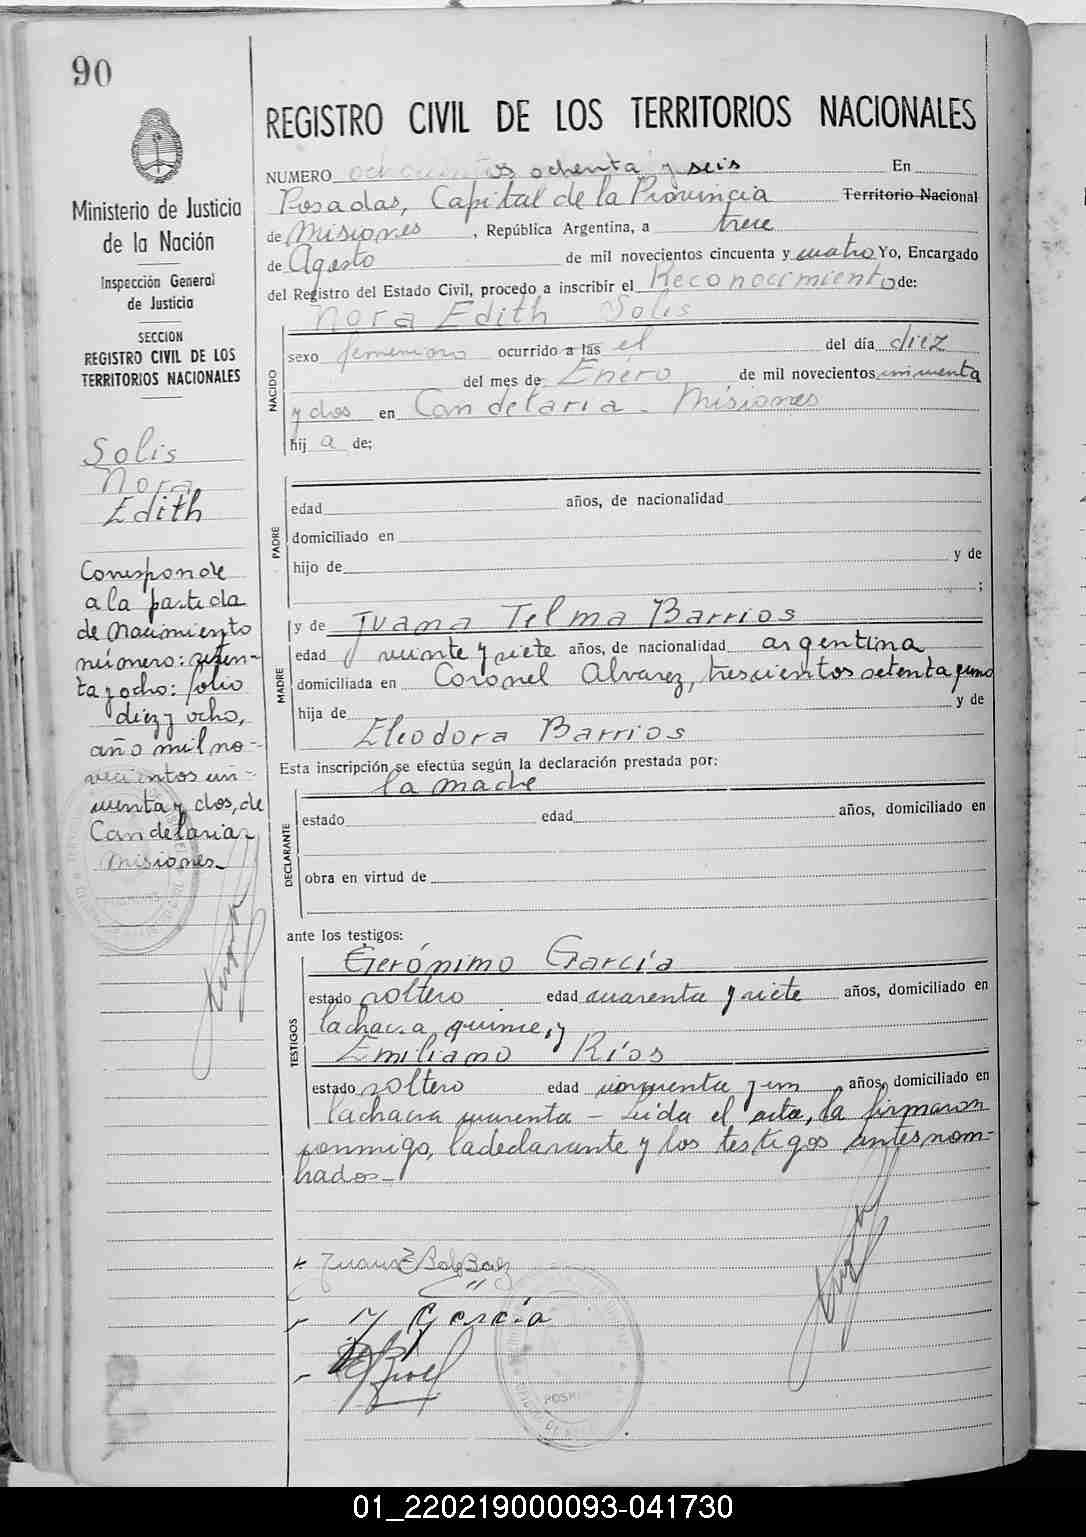 90
Ministerio de Justicia
de la Nación
Inspección General
de Justicia
SECCION
REGISTRO CIVIL DE LOS
TERRITORIOS NACIONALES
Solis
Nora
Edith
Corresponde
a la partida
de Nacimiento
número: seten-
ta y ocho: folio
diez y ocho,
año mil no-
vecientos cin-
cuenta y dos, de
Candelaria,
Misiones.
REGISTRO CIVIL DE LOS TERRITORIOS NACIONALES
NUMERO ochocientos ochenta y seis En
Posadas, Capital de la Provincia Territorio Nacional
de Misiones, República Argentina, a trece
de Agosto de mil novecientos cincuenta y cuatro Yo, Encargado
del Registro del Estado Civil, procedo a inscribir el Reconocimiento de:
Nora Edith Solis
NACIDO
sexo femenino ocurrido a las el del día diez
del mes de Enero de mil novecientos cincuenta
y dos en Candelaria - Misiones
hij a de;
PADRE
edad años, de nacionalidad
domiciliado en
hijo de y de
;
MADRE
y de Juana Telma Barrios
edad veinte y siete años, de nacionalidad argentina
domiciliada en Coronel Alvarez, trescientos setenta y uno
hija de y de
Eleodora Barrios
Esta inscripción se efectúa según la declaración prestada por:
la madre
DECLARANTE
estado edad años, domiciliado en
obra en virtud de
ante los testigos:
TESTIGOS
Gerónimo García
estado soltero edad cuarenta y siete años, domiciliado en
la chacra quince, y
Emiliano Ríos
estado soltero edad cincuenta y un años, domiciliado en
la chacra cuarenta - Leída el acta, la firmaron
conmigo, la declarante y los testigos antes nom-
brados -
García
01_220219000093-041730